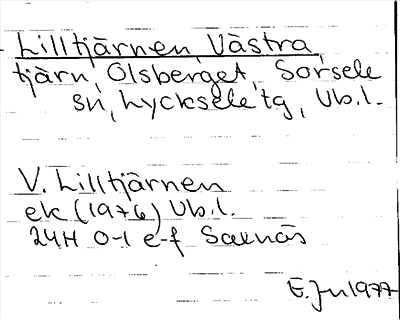 Lilltjärnen, Västra,
tjärn, Olsberget, Sorsele
sn, Lycksele tg, Vb.l.
V. Lilltjärnen
ek (1976) Vb.l.
24H 0-1 e-f Saxnäs
E. Jn 1977